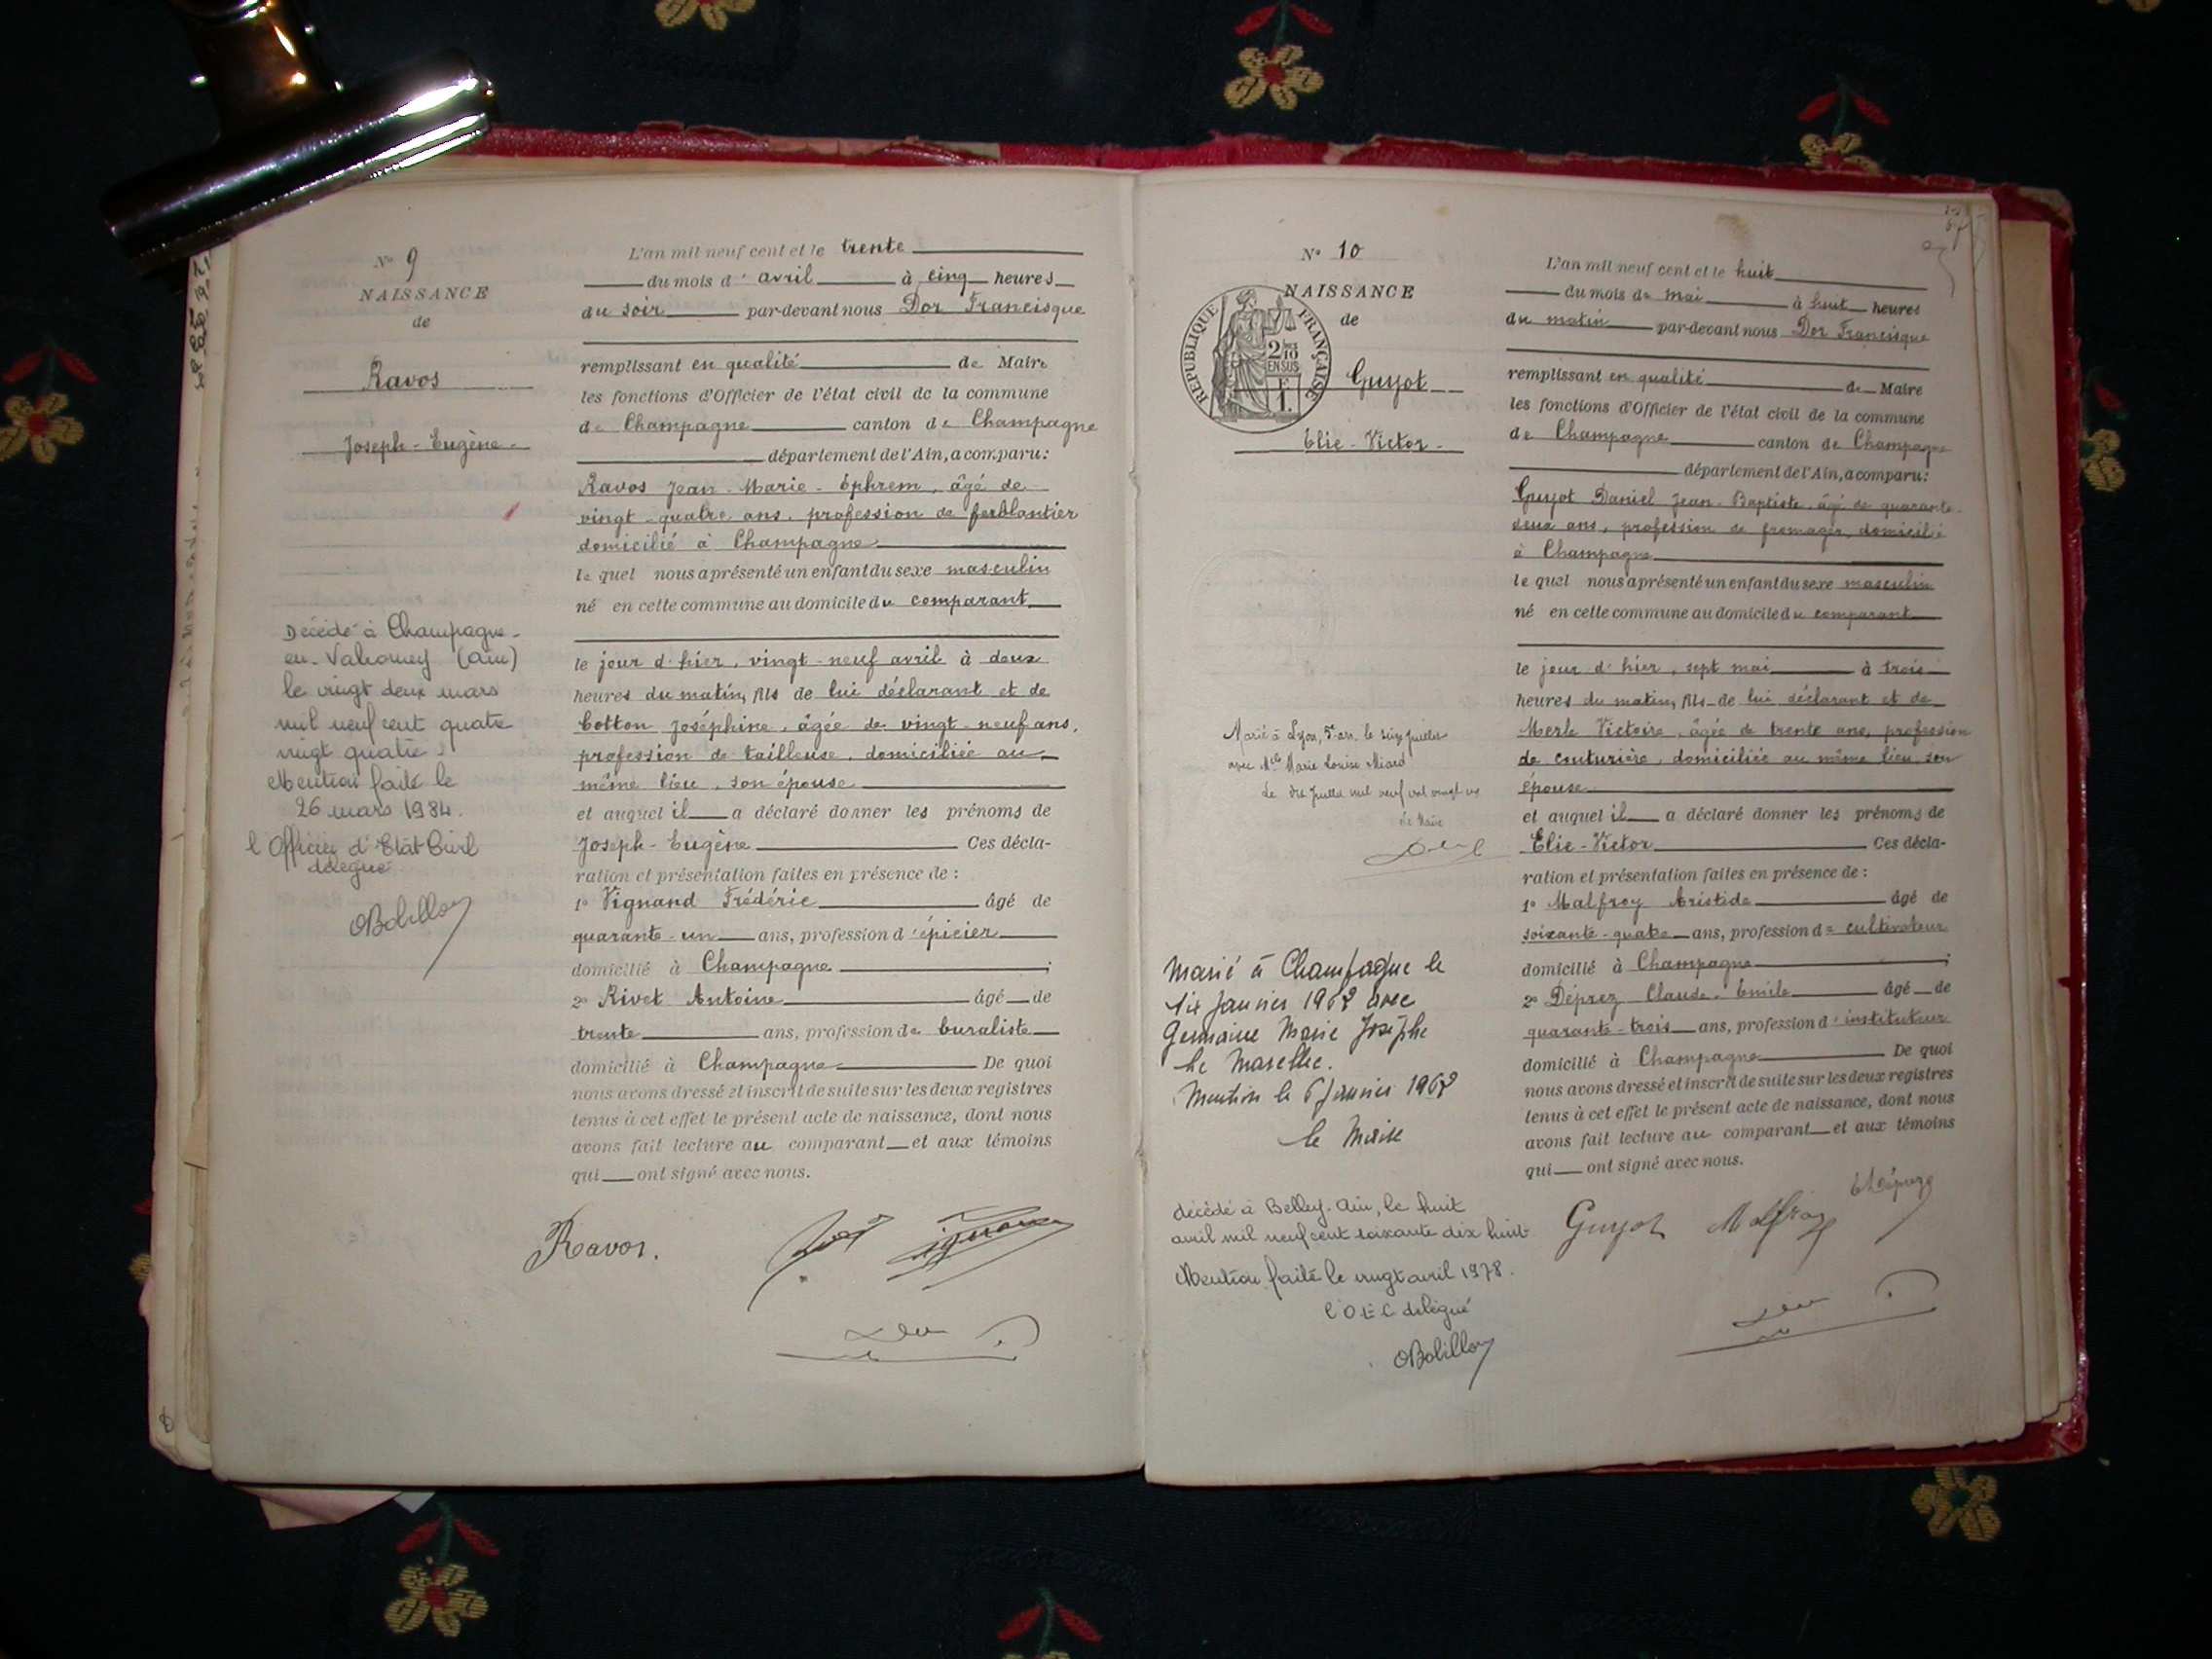 N° 9
NAISSANCE
de
Ravos
Joseph-Eugène-
Décédé à Champagne-
en-Valromey (Ain)
le vingt deux mars
mil neuf cent quatre
vingt quatre
Mention faite le
26 mars 1984.
l'Officier d'Etat Civil
délégué
OBolillon
L'an mil neuf cent et le trente
du mois d'avril à cinq heures
du soir par-devant nous Dor Francisque
remplissant en qualité de Maire
les fonctions d'Officier de l'état civil de la commune
de Champagne canton de Champagne
département de l'Ain, a comparu:
Ravos Jean-Marie-Ephrem, âgé de
vingt-quatre ans, profession de ferblantier
domicilié à Champagne
lequel nous a présenté un enfant du sexe masculin
né en cette commune au domicile du comparant
le jour d'hier, vingt-neuf avril à deux
heures du matin, fils de lui déclarant et de
Cotton Joséphine, âgée de vingt-neuf ans,
profession de tailleuse, domiciliée au
même lieu, son épouse
et auquel il a déclaré donner les prénoms de
Joseph-Eugène Ces décla-
ration et présentation faites en présence de :
1° Vignand Frédéric âgé de
quarante-un ans, profession d'épicier
domicilié à Champagne ;
2° Rivet Antoine âgé de
trente ans, profession de buraliste
domicilié à Champagne De quoi
nous avons dressé et inscrit de suite sur les deux registres
tenus à cet effet le présent acte de naissance, dont nous
avons fait lecture au comparant et aux témoins
qui ont signé avec nous.
Ravos.
N° 10
NAISSANCE
de
REPUBLIQUE FRANÇAISE
2/10
EN SUS
Guyot
Elie-Victor-
Marié à Lyon, 5e arr. le seize juillet
avec Mlle Marie Louise Miard
Le dix juillet mil neuf cent vingt
Le Maire
Marié à Champagne le
six janvier 1962 avec
Germaine Marie Josèphe
Le Marellec.
Mention le 6 janvier 1962
le Maire
décédé à Belley-Ain, le huit
avril mil neuf cent soixante dix huit
Mention faite le vingt avril 1978.
L'OEC délégué
OBolillon
L'an mil neuf cent et le huit
du mois de mai à huit heures
du matin par-devant nous Dor Francisque
remplissant en qualité de Maire
les fonctions d'Officier de l'état civil de la commune
de Champagne canton de Champagne
département de l'Ain, a comparu:
Guyot Daniel Jean-Baptiste, âgé de quarante-
deux ans, profession de fromager, domicilié
à Champagne
lequel nous a présenté un enfant du sexe masculin
né en cette commune au domicile du comparant
le jour d'hier, sept mai à trois
heures du matin, fils de lui déclarant et de
Merle Victoire, âgée de trente ans, profession
de couturière, domiciliée au même lieu, son
épouse
et auquel il a déclaré donner les prénoms de
Elie-Victor Ces décla-
ration et présentation faites en présence de :
1° Malfroy Aristide âgé de
soixante-quatre ans, profession de cultivateur
domicilié à Champagne ;
2° Déprez Claude-Emile âgé de
quarante-trois ans, profession d'instituteur
domicilié à Champagne De quoi
nous avons dressé et inscrit de suite sur les deux registres
tenus à cet effet le présent acte de naissance, dont nous
avons fait lecture au comparant et aux témoins
qui ont signé avec nous.
Guyot Malfroy Déprez